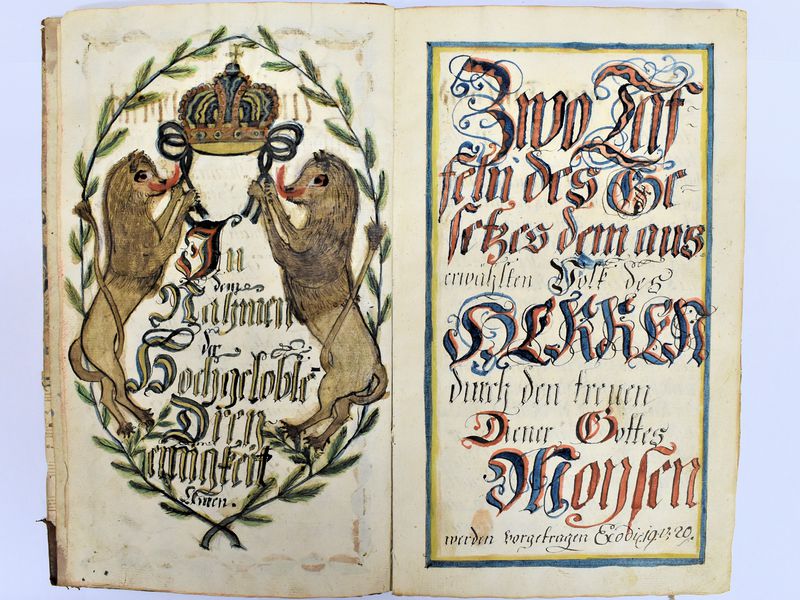 In
dem
Nahmen
der
Hochgelobte
Dreÿ
einigkeit
Amen.
Zwo Taf-
feln des Ge-
setzes dem aus
erwählten Volk des
HERREN
durch den treuen
Diener Gottes
Moysen
werden vorgetragen Exodi, 19. & 20.